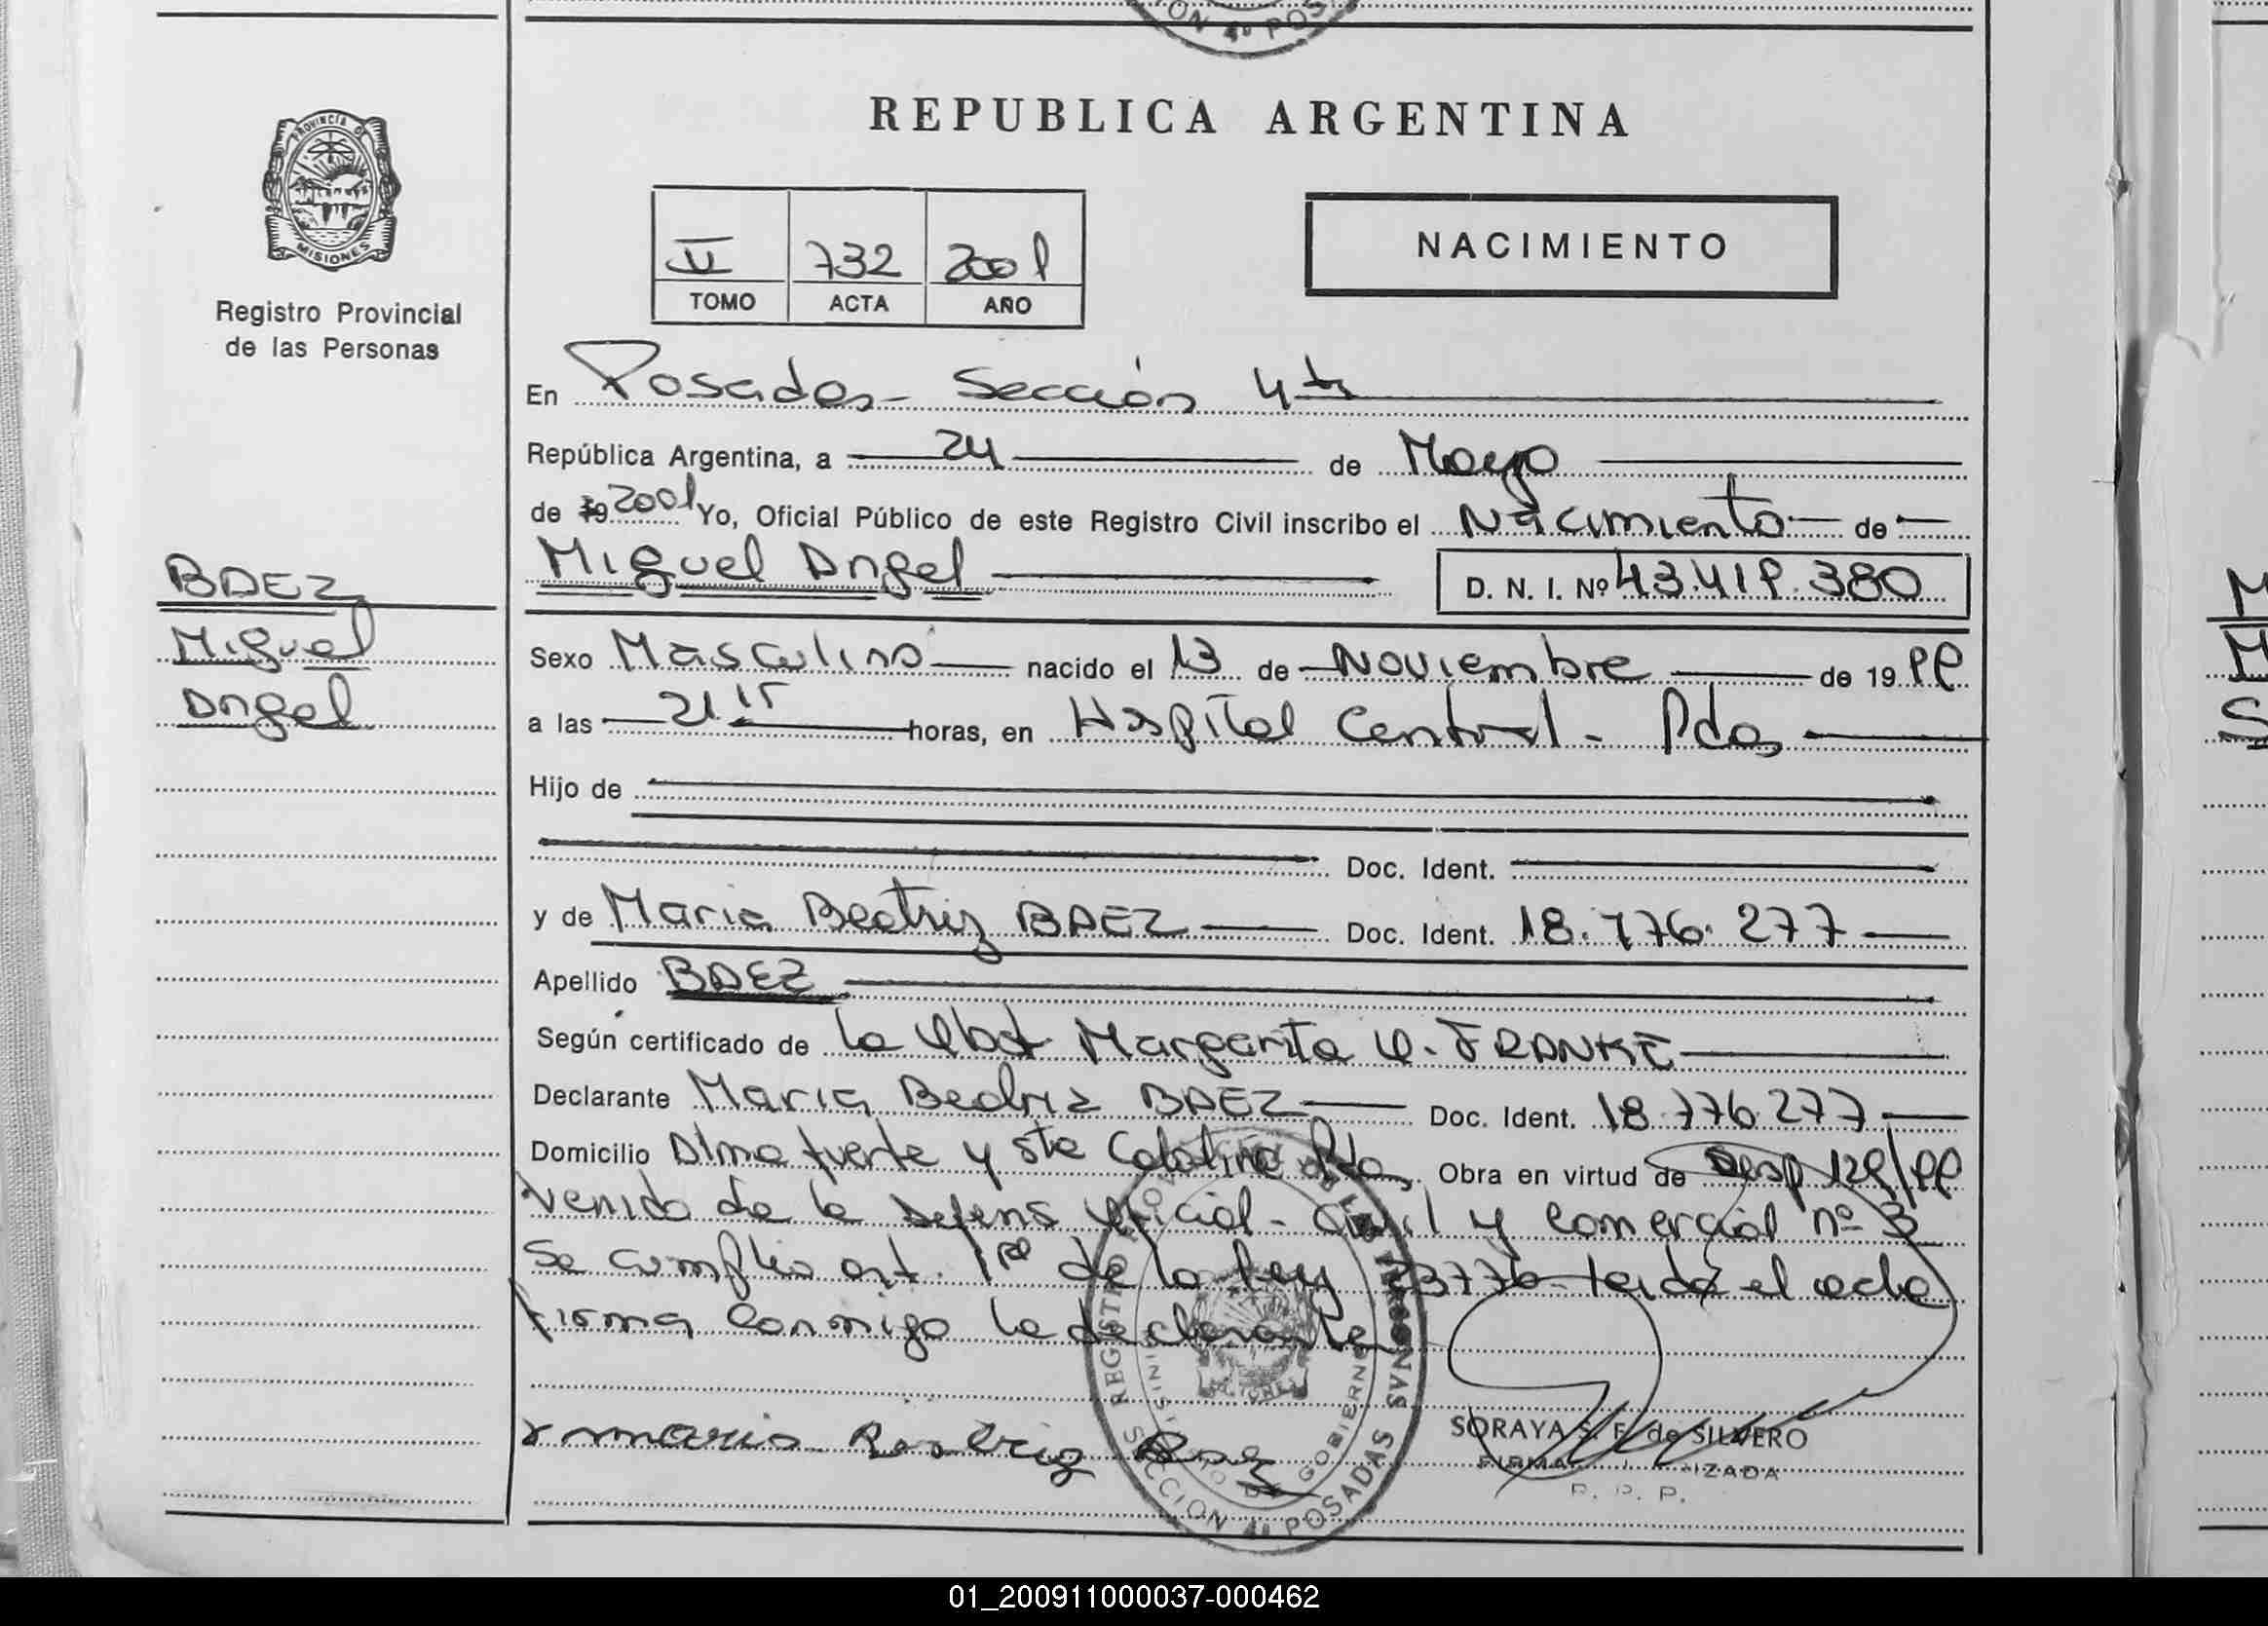 REPUBLICA ARGENTINA
PROVINCIA DE
MISIONES
Registro Provincial
de las Personas
II 732 2001
TOMO ACTA AÑO
NACIMIENTO
En Posadas - Sección 4ta
República Argentina, a 24 de Mayo
de 19 2001 Yo, Oficial Público de este Registro Civil inscribo el Nacimiento de
Miguel Angel
D. N. I. Nº 43.419.380
BAEZ
Miguel
Angel
Sexo Masculino nacido el 13 de Noviembre de 19 99
a las 21 15 horas, en Hospital Central - Pdas
Hijo de
Doc. Ident.
y de Maria Beatriz BAEZ Doc. Ident. 18.776.277
Apellido BAEZ
Según certificado de la Obst Margarita O. FRANKE
Declarante Maria Beatriz BAEZ Doc. Ident. 18.776.277
Domicilio Almafuerte y Sta Catalina Pdas Obra en virtud de 129/99
venido de la Defens Oficial - Civil y Comercial nº 3
Se cumplio art. 1º de la ley 23776 leida el acta
firma conmigo la declarante
x maria Beatriz Baez
REGISTRO PERSONAS
GOBIERNO
SECCION 4a POSADAS
SORAYA S. F. de SILVERO
R. P. P.
01_200911000037-000462